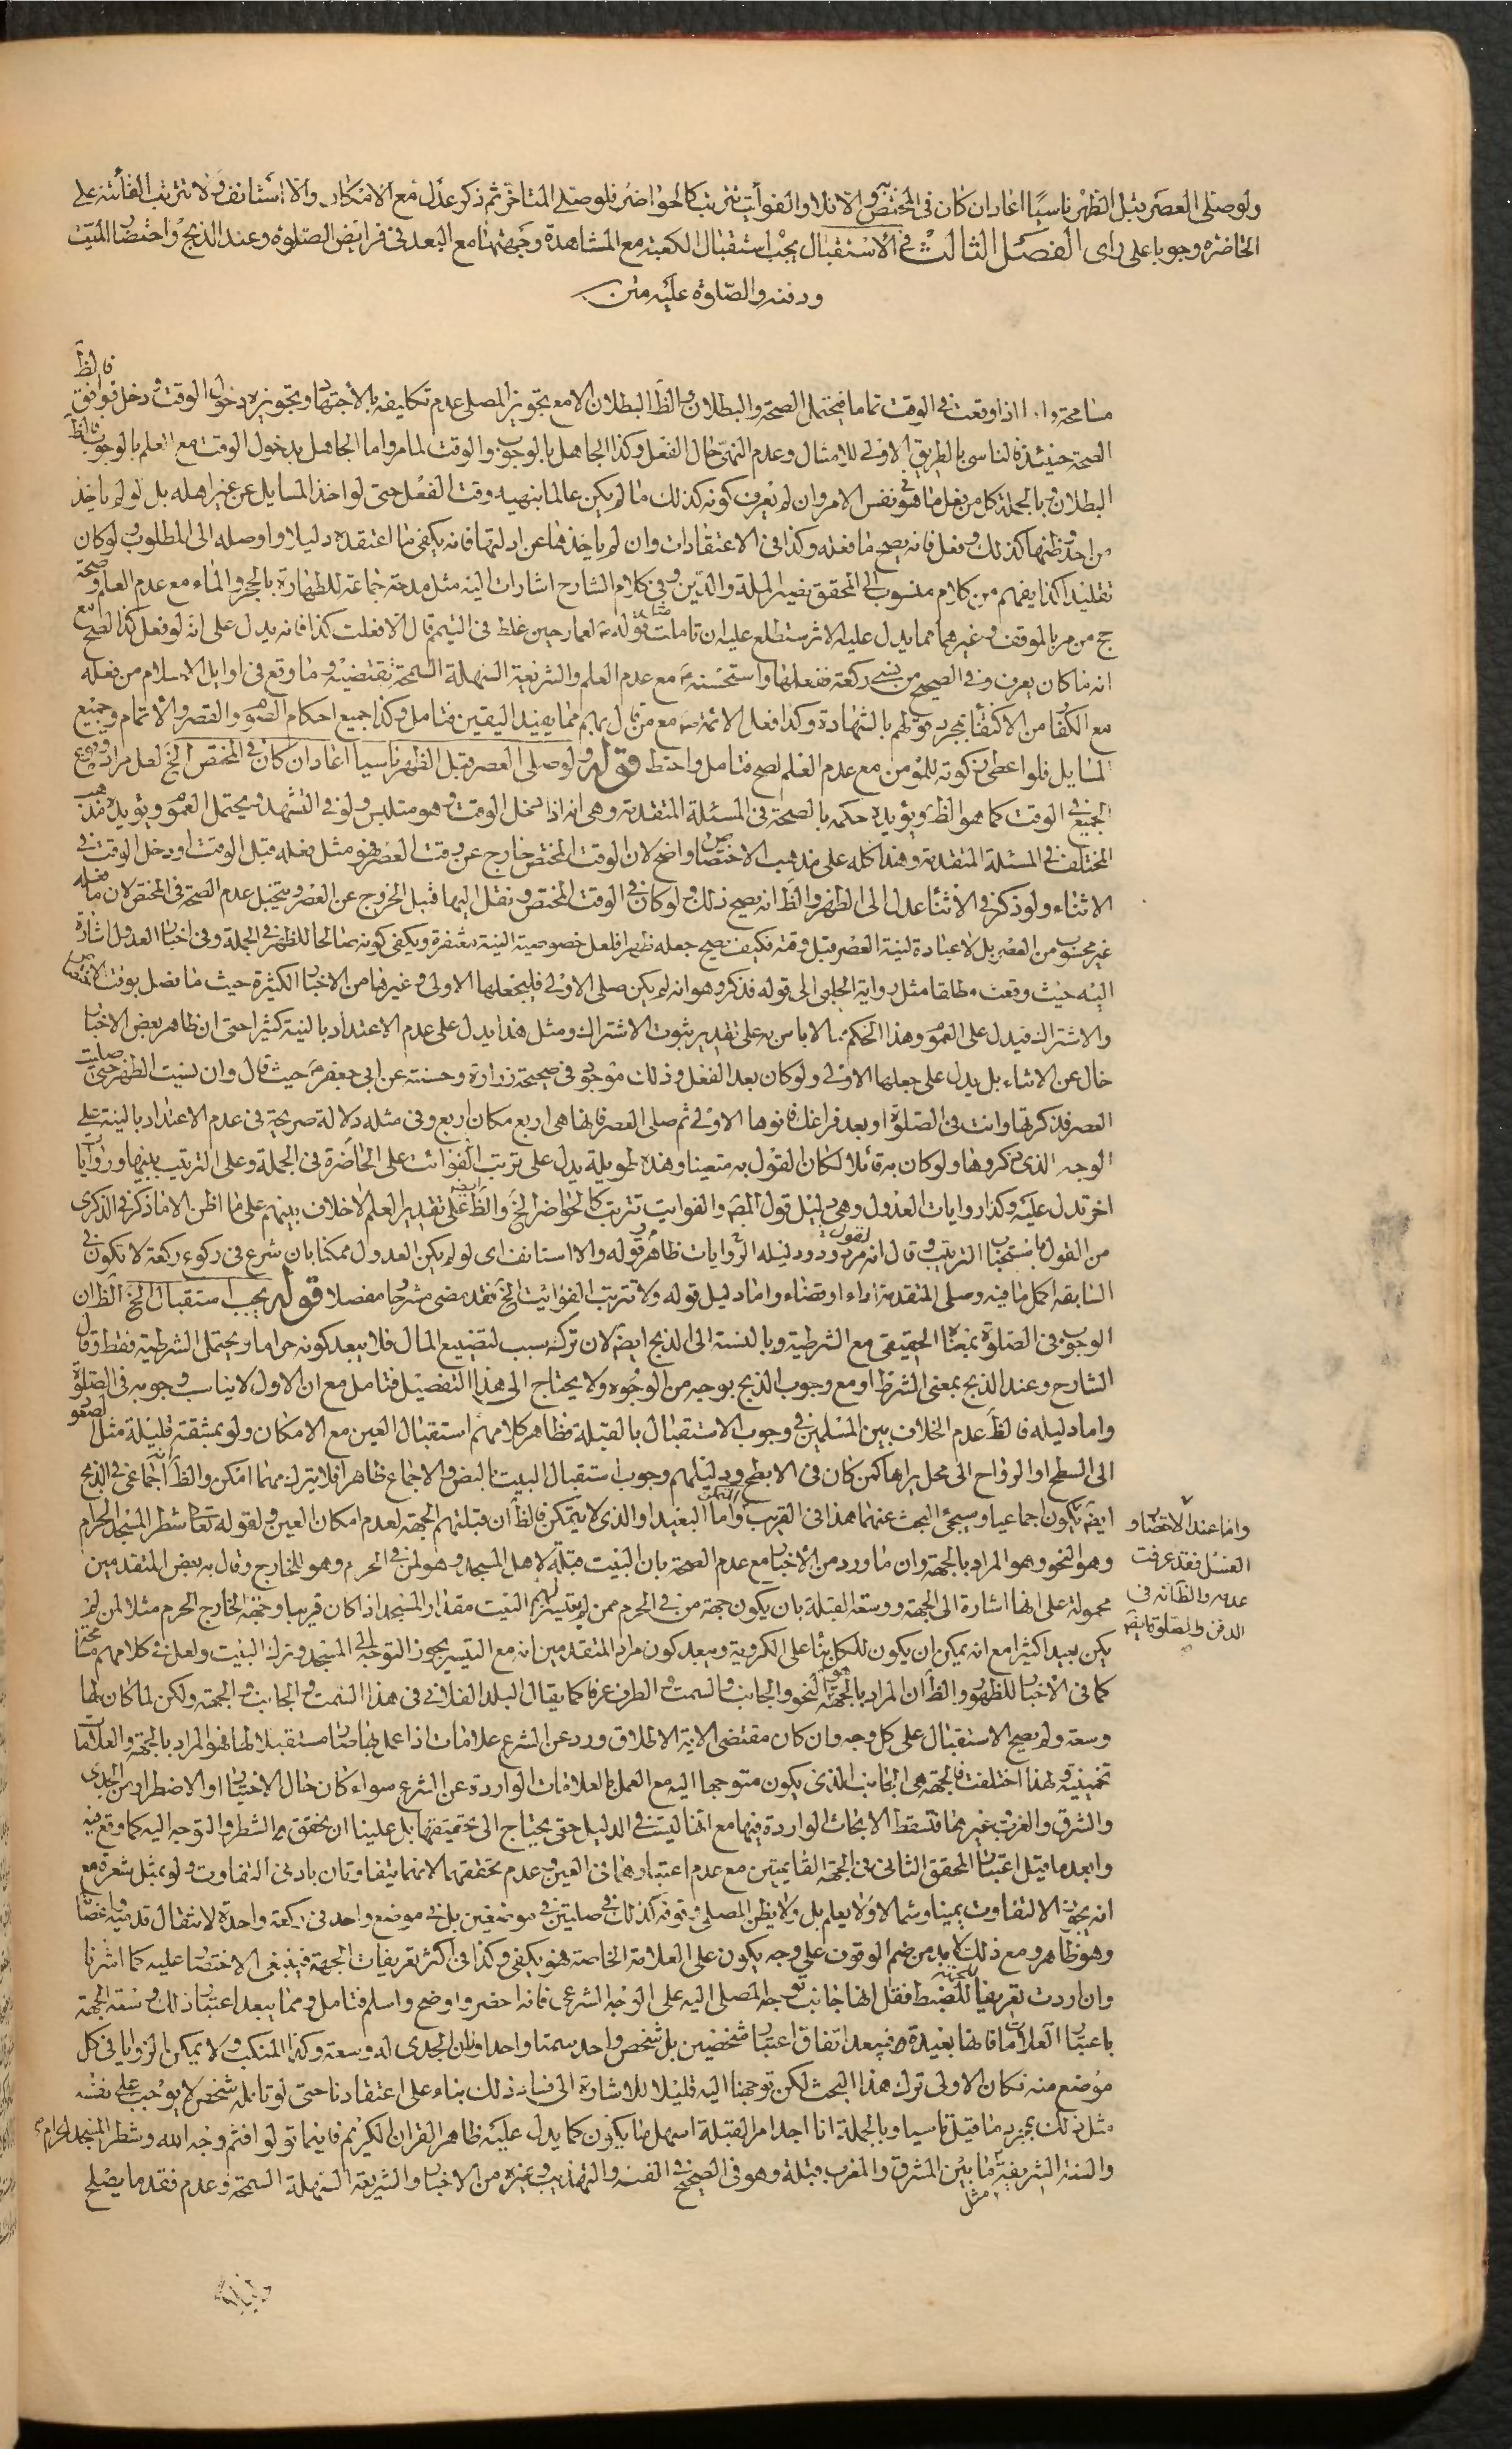 ولو صلى العصر قبل الظهر ناسيًا اعاد ان كان فى المختص والا فلا والفوائت تترتب كالحواضر فلو صلى المتاخرة ثم ذكر عدل مع الامكان والا استانف ولا تترتب الفائتة على
الحاضرة وجوبا على راى الفصل الثالث فى الاستقبال يجب استقبال الكعبة مع المشاهدة وجهتها مع البعد فى فرايض الصلوة وعند الذبح واحتضار الميت
ودفنه والصلوة عليه متن
فالظ
مسامحة واما اذا وقعت فى الوقت تماما فيحتمل الصحة والبطلان والظ البطلان الا مع تجويز المصلى عدم تكليفه بالاجتهاد وتجويزه دخول الوقت ودخل فوافق
الصحة حينئذ فالناسى بالطريق الاولى للامتثال وعدم النهى حال الفعل وكذا الجاهل بالوجوب والوقت لما مر واما الجاهل بدخول الوقت مع العلم بالوجوب فالظ
البطلان وبالجملة كل من فعل ما هو فى نفس الامر وان لم يعرف كونه كذلك ما لم يكن عالما بنهيه وقت الفعل حتى لو اخذ المسايل عن غير اهله بل لو لم ياخذ
من احد وظنها كذلك وفعل فانه يصح ما فعله وكذا فى الاعتقادات وان لم ياخذها عن ادلتها فانه يكفى ما اعتقده دليلا واوصله الى المطلوب ولو كان
تقليدا كذا يفهم من كلام منسوب الى المحقق نصير الملة والدين وفى كلام الشارح اشارات اليه مثل مدحه جماعة للطهارة بالحجر والماء مع عدم العلم وصحة
حج من مر بالموقف وغيرهما مما يدل عليه الاثر ستطلع عليه ان تاملت مثل قوله ع لعمار حين غلط فى التيمم قال الا فعلت كذا فانه يدل على انه لو فعل كذا لصح مع
انه ما كان يعرف وفى الصحيح من نسى ركعة ففعلها واستحسنه ع مع عدم العلم والشريعة السهلة السمحة تقتضيه وما وقع فى اوايل الاسلام من فعله
مع الكفار من الاكتفاء بمجرد قولهم بالشهادة وكذا فعل الائمة مع من قال بهم مما يفيد اليقين فتامل وكذا جميع احكام الصوم والقصر والاتمام وجميع
المسايل فلو اعطى زكوته للمؤمن مع عدم العلم لصح فتامل واحتط قوله ولو صلى العصر قبل الظهر ناسيا اعاد ان كان فى المختص الخ لعل مراده وقوع
الجميع فى الوقت كما هو الظ ويؤيده حكمه بالصحة فى المسئلة المتقدمة وهى انه اذا دخل الوقت وهو متلبس ولو فى التشهد ويحتمل العموم ويؤيده مذهب
المختلف فى المسئلة المتقدمة وهذا كله على مذهب الاختصاص واضح لان الوقت المختص خارج عن وقت العصر فهو مثل فعله قبل الوقت او دخل الوقت فى
الاثناء ولو ذكر فى الاثناء عدل الى الظهر والظ انه يصح ذلك ولو كان فى الوقت المختص ونقل اليها قبل الخروج عن العصر ويتخيل عدم الصحة فى المختص لان ما فعله
غير محسوب من العصر بل لا عبادة لنية العصر قبل وقته فكيف يصح جعله ظهرا فلعل خصوصية النية مغتفرة ويكفى كونه صالحا للظهر فى الجملة وفى اخبار العدول اشارة
اليه حيث وقعت مطلقا مثل رواية الحلبى الى قوله فذكر وهو انه لم يكن صلى الاولى فليجعلها الاولى وغيرها من الاخبار الكثيرة حيث ما فصل بوقت الاختصاص
والاشتراك فيدل على العموم وهذا الحكم مما لا باس به على تقدير ثبوت الاشتراك ومثل هذا يدل على عدم الاعتداد بالنية كثيرا حتى ان ظاهر بعض الاخبار
خال عن الاثناء بل يدل على جعلها الاولى ولو كان بعد الفعل وذلك موجود فى صحيحة زرارة وحسنته عن ابى جعفر ع حيث قال وان نسيت الظهر حتى صليت
العصر فذكرتها وانت فى الصلوة او بعد فراغك فانوها الاولى ثم صلى العصر فانها هى اربع مكان اربع وفى مثله دلالة صريحة فى عدم الاعتداد بالنية على
الوجه الذى ذكروها ولو كان به قائلا لكان القول به متعينا وهذه طويلة يدل على ترتب الفوائت على الحاضرة فى الجملة وعلى الترتيب بينها وروايات
اخر تدل عليه وكذا روايات العدول وهى دليل قول المص والفوايت تترتب كالحواضر الخ والظ ايضا على تقدير العلم لا خلاف بينهم على ما اظن الا ما ذكر فى الذكرى
من القول باستحباب الترتيب وقال انه مردود ودليله الروايات ظاهر قوله والا استانف اى لو لم يكن العدول ممكنا بان شرع فى ركوع ركعة لا تكون فى
السابقة اكمل ما فيه وصلى المتقدمة اداء او قضاء واما دليل قوله ولا تترتب الفوائت الخ فقد مضى مشروحا مفصلا قوله يجب استقبال الخ الظ ان
الوجوب فى الصلوة بمعناه الحقيقى مع الشرطية وبالنسبة الى الذبح ايضا لان تركه سبب لتضييع المال فلا يبعد كونه حراما ويحتمل الشرطية فقط وقال
الشارح وعند الذبح بمعنى الشرط او مع وجوب الذبح بوجه من الوجوه ولا يحتاج الى هذا التفصيل فتامل مع ان الاول لا يناسب وجوبه فى الصلوة
واما دليله فالظ عدم الخلاف بين المسلمين فى وجوب الاستقبال بالقبلة فظاهر كلامهم استقبال العين مع الامكان ولو بمشقة قليلة مثل الصعود
الى السطح او الرواح الى محل يراها كمن كان فى الابطح ودليلهم وجوب استقبال البيت بالنص والاجماع ظاهرا فلا يترك مهما امكن والظ انه اجماعى فى الذبح
ايضا يكون اجماعيا وسيجئ البحث عنهما هذا فى القريب واما البعيد او الذى لا يتمكن فالظ ان قبلتهم الجهة لعدم امكان العين ولقوله تعالى شطر المسجد الحرام
وهو النحو وهو المراد بالجهة وان ما ورد من الاخبار مع عدم الصحة بان البيت قبلة لاهل المسجد وهو لمن فى الحرم وهو للخارج وقال به بعض المتقدمين
محمولة على انها اشارة الى الجهة ووسعة القبلة بان يكون جهة من فى الحرم ممن لم يتيسر لهم البيت مقدار المسجد اذا كان قريبا وجهة الخارج الحرم مثلا لمن لم
يكن بعيدا كثيرا مع انه يمكن ان يكون للكل بناء على الكروية ويبعد كون مراد المتقدمين انه مع التيسر يجوز التوجه الى المسجد وترك البيت ولعل فى كلامهم مسامحة
كما فى الاخبار للظهور والظ ان المراد بالجهة هو النحو والجانب والسمت والطرف عرفا كما يقال البلد الفلانى فى هذا السمت والجانب والجهة ولكن لما كان لها
وسعة ولم يصح الاستقبال على كل وجه وان كان مقتضى الاية الاطلاق ورد عن الشرع علامات اذا عمل بها صار مستقبلا لها فهو المراد بالجهة والعلامات
تخمينية ولهذا اختلفت فالجهة هى الجانب الذى يكون متوجها اليه مع العمل بالعلامات الواردة عن الشرع سواء كان حال الاختيار او الاضطرار من الجدى
والشرق والغرب غيرهما فتسقط الابحاث الواردة فيها مع انها ليست فى الدليل حتى يحتاج الى تحقيقها بل علينا ان نحقق الشطر والتوجه اليه كما وقع فيه
وابعد ما قيل اعتبار المحقق الثانى فى الجهة القايمتين مع عدم اعتبارهما فى العين وعدم تحققهما لانهما يتفاوتان بادنى التفاوت ولو بمثل شعرة مع
انه يجوز الالتفاوت يمينا وشمالا ولا يعلم بل ولا يظن المصلى وقوفه كذلك فى صلوتين فى موضعين بل فى موضع واحد فى ركعة واحدة لانتقال قدميه واعضائه
وهو ظاهر ومع ذلك لا بد من ضم الوقوف على وجه يكون على العلامة الخاصة فهو يكفى وكذا فى اكثر تعريفات الجهة فينبغى الاختصار عليه كما اشرنا
وان اردت تعريفا للجهة للضبط فقل انها جانب توجه المصلى اليه على الوجه الشرعى فانه احضر واوضح واسلم فتامل ومما يبعد اعتبار ذلك وسعة الجهة
باعتبار العلامات فانها بعيدة فيبعد اتفاق اعتبار شخصين بل شخص واحد سمتا واحدا فان الجدى له وسعة وكذا المنكب ولا يمكن الزوايا فى كل
موضع منه فكان الاولى ترك هذا البحث لكن توجهنا اليه قليلا للاشارة الى فساد ذلك بناء على اعتقادنا حتى لو قابله شخص لا يوجب على نفسه
مثل ذلك بمجرد ما قيل قاسيا وبالجملة انا اجد امر القبلة اسهل ما يكون كما يدل عليه ظاهر القران الكريم فاينما تولوا فثم وجه الله وشطر المسجد الحرام
والسنة الشريفة مثل ما بين المشرق والمغرب قبلة وهو فى الصحيح فى الفقيه والتهذيب وغيره من الاخبار والشريعة السهلة السمحة وعدم فقد ما يصلح
واما عند الاحتضار و
الغسل فقد عرفت
عدمه والظ انه فى
الدفن والصلوة ايضا